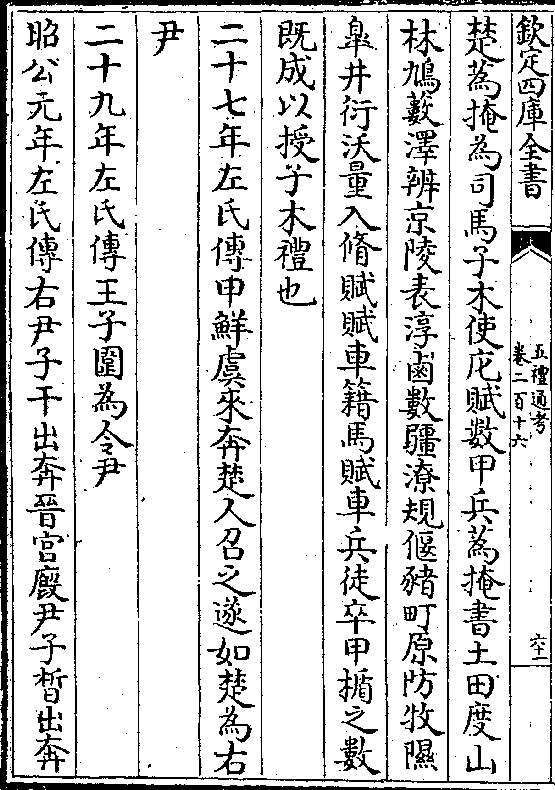 欽定四庫全書
五禮通考
卷二百十六
六十一
楚蒍掩為司馬子木使庀賦數甲兵蒍掩書土田度山
林鳩藪澤辨京陵表淳鹵數疆潦規偃豬町原防牧隰
臯井衍沃量入脩賦賦車籍馬賦車兵徒卒甲楯之數
既成以授子木禮也
二十七年左氏傳申鮮虞來奔楚人召之遂如楚為右
尹
二十九年左氏傳王子圍為令尹
昭公元年左氏傳右尹子干出奔晉宮廏尹子晳出奔